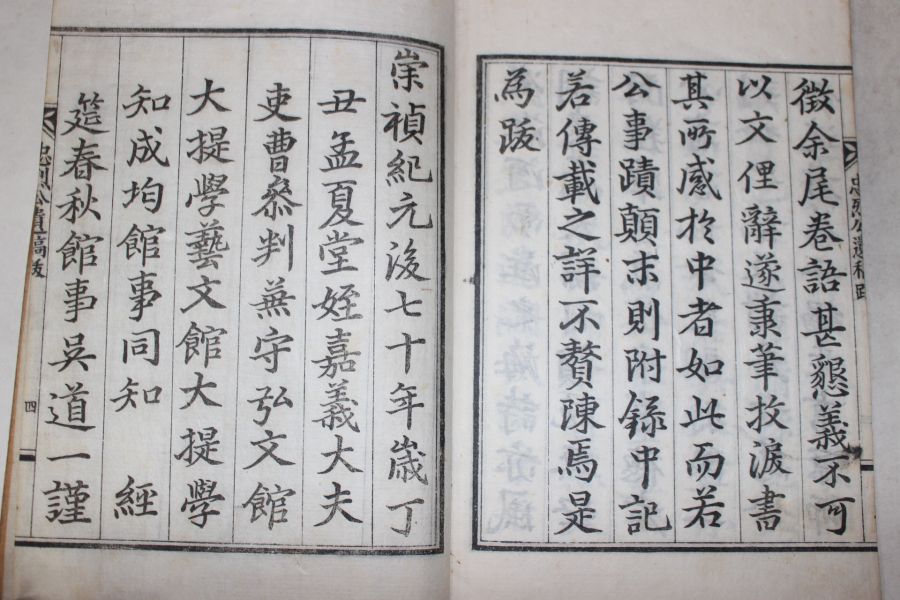 徵余尾卷語甚懇義不可
以文俚辭遂秉筆抆淚書
其所感於中者如此而若
公事蹟顚末則附錄中記
若傳載之詳不贅陳焉是
為跋
崇禎紀元後七十年歲丁
丑孟夏堂姪嘉義大夫
吏曹叅判兼守弘文館
大提學藝文館大提學
知成均館事同知 經
筵春秋館事吳道一謹
忠烈公遺稿跋
四